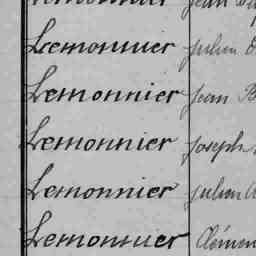 Lemonnier Jean
Lemonnier Julien
Lemonnier Jean B
Lemonnier Joseph
Lemonnier Julien
Lemonnier Clémen